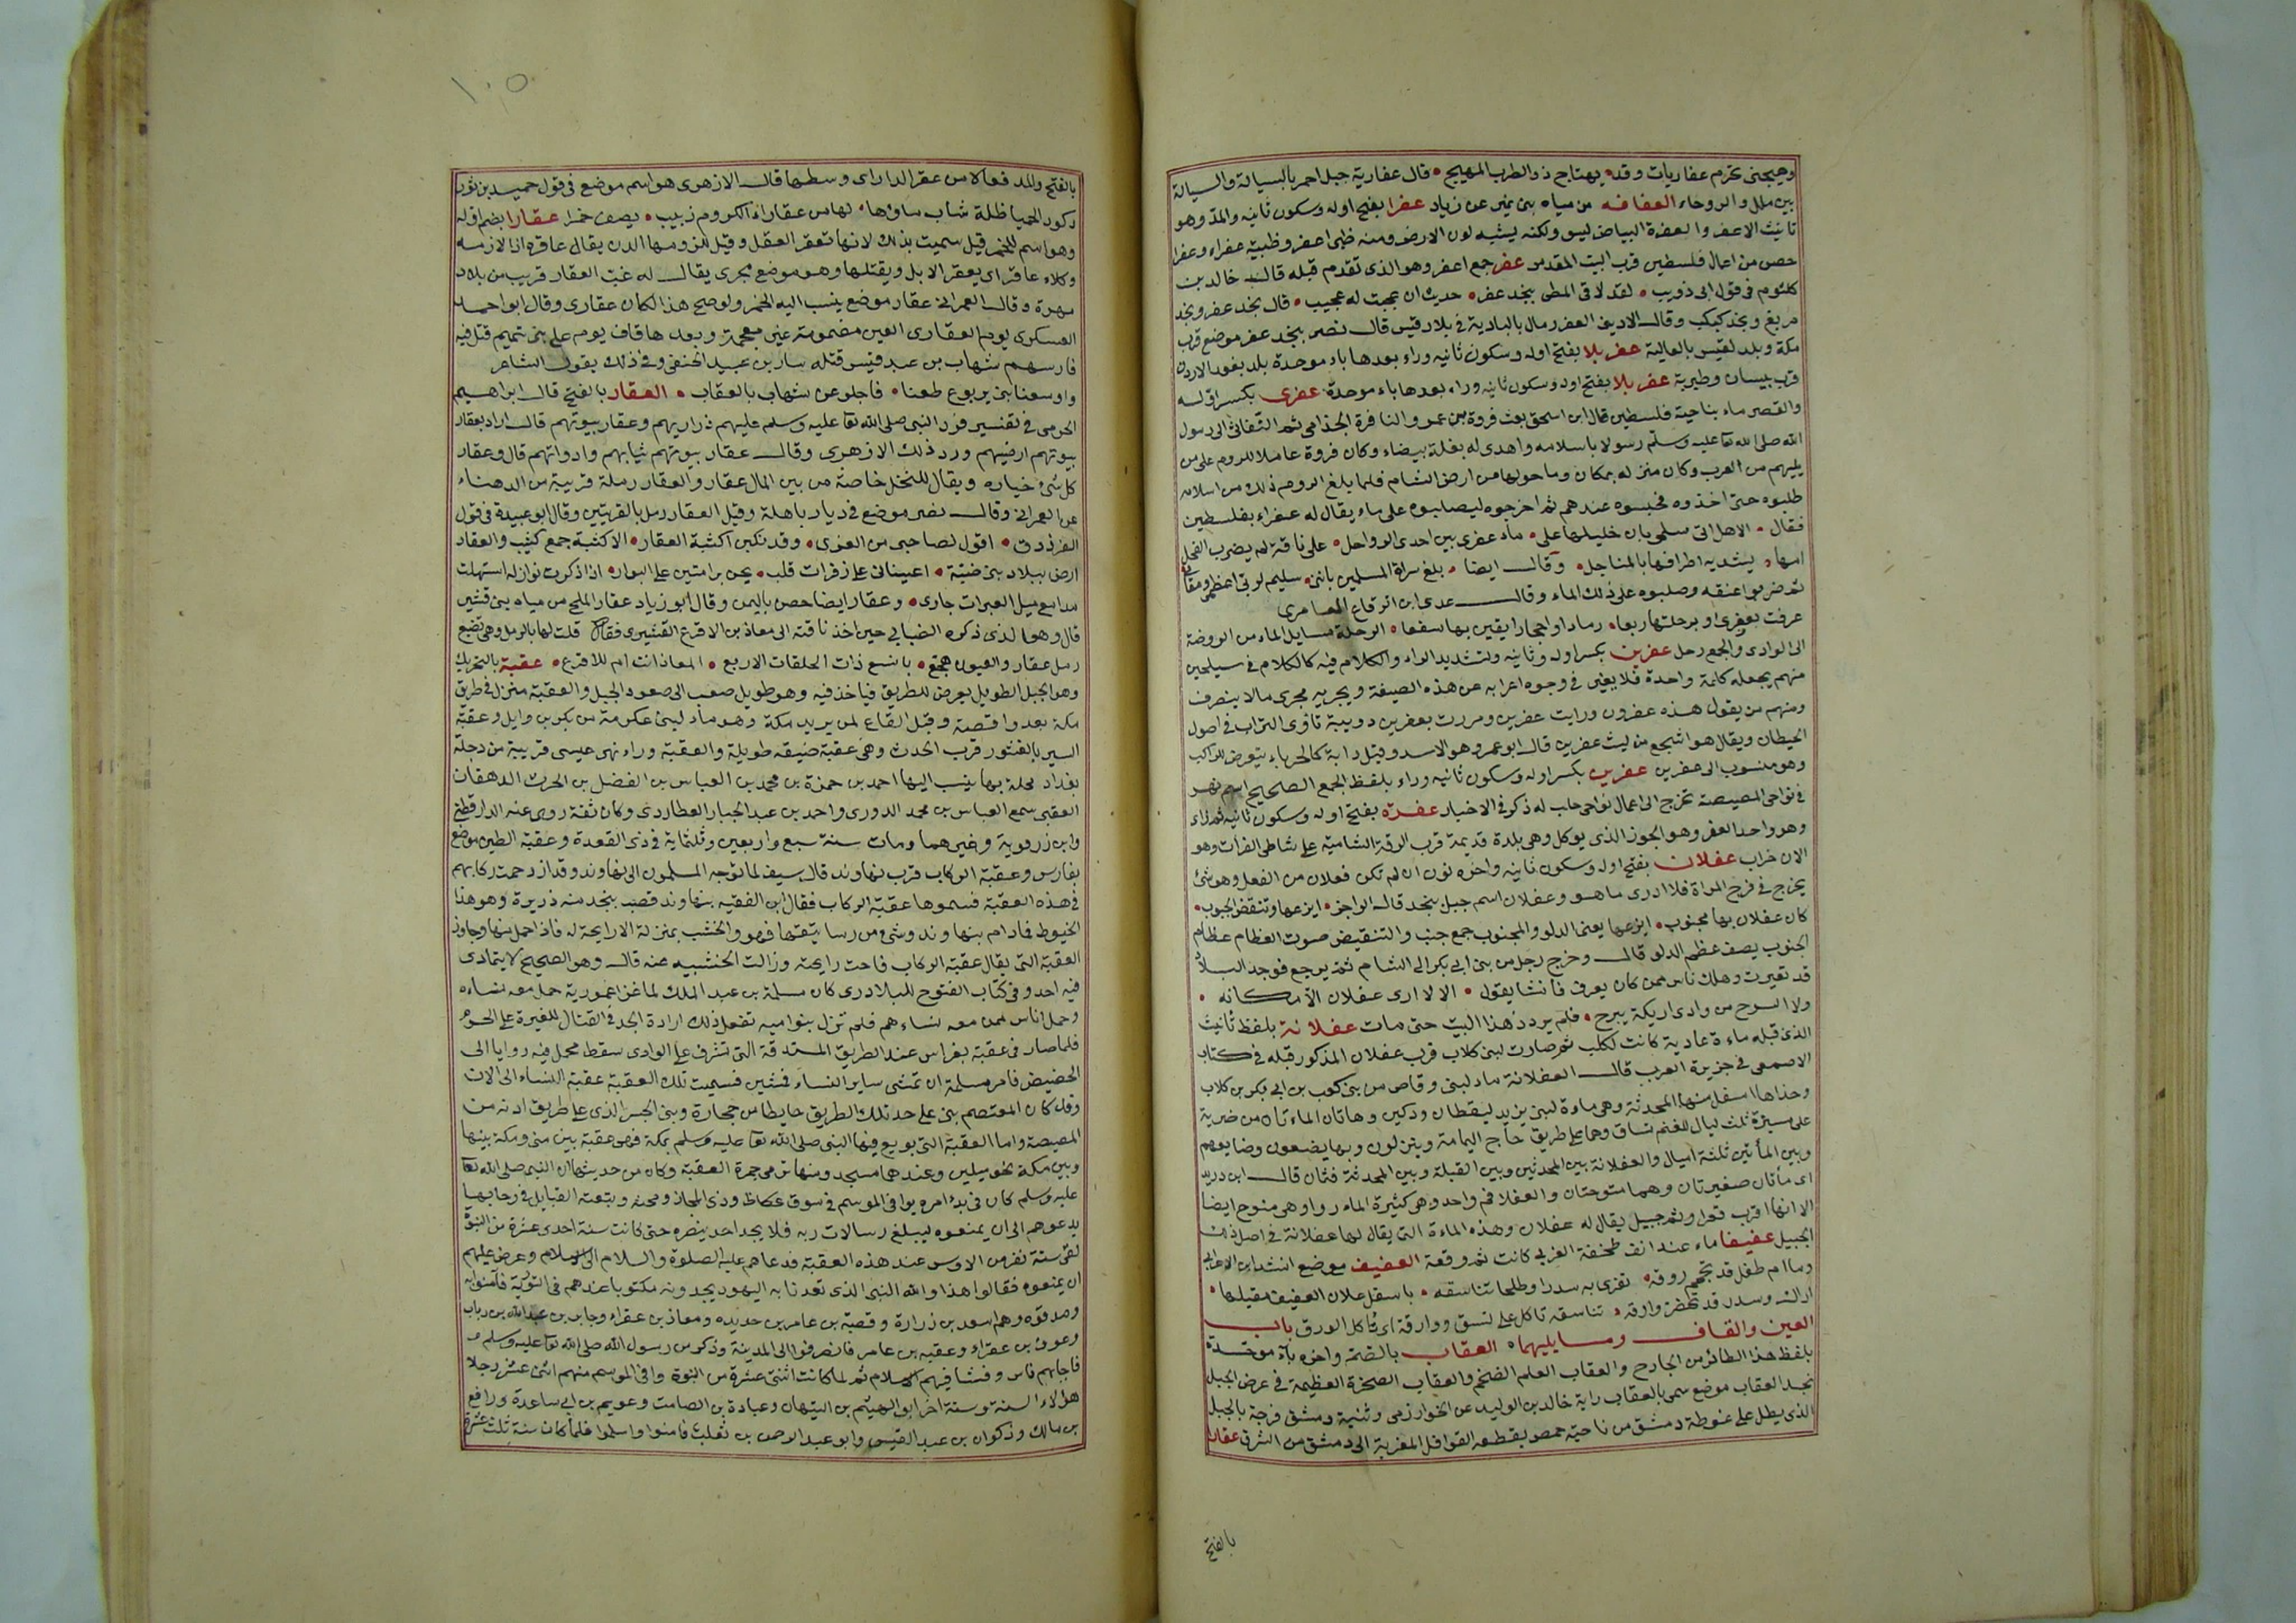 وهيجني بحزم عفاريات وقد • يهتاج ذو الطرب المهيج • قال عفارية جبل احمر بالسيالة والسيالة
بين ملل والروحاء العفافه من مياه بني نمير عن زياد عفرا بفتح اوله وسكون ثانيه والمد وهو
تانيث الاعفر والعفرة البياض ليس ولكنه يشبه لون الارض ومنه ظبي اعفر وظبية عفراء وعفرا
حصن من اعمال فلسطين قرب البيت المقدس عفر جمع اعفر وهو الذي تقدم قبله قال خالد بن
كلثوم في قول ابي ذويب • لقد لاقى المطي بنجد عفر • حديث ان عجبت له عجيب • قال نجد عفر ونجد
مريع ونجد كبكب وقال الاديبي العفر رمال بالبادية في بلاد قيس قال نصر نجد عفر موضع قرب
مكة وبلد لقيس بالعالية عفربلا بفتح اوله وسكون ثانيه وراء بعدها باء موحدة بلد بغور الاردن
قرب بيسان وطبرية عفربلا بفتح اوله وسكون ثانيه وراء بعدها باء موحدة عفرى بكسر اوله
والقصر ماء بناحية فلسطين قال ابن اسحق بعث فروة بن عمرو النافرة الجذامي ثم النفاثي الى رسول
الله صلى الله تعا عليه وسلم رسولا باسلامه واهدى له بغلة بيضاء وكان فروة عاملا للروم على من
يليهم من العرب وكان منزله بمكان وما حولها من ارض الشام فلما بلغ الروم ذلك من اسلامه
طلبوه حتى اخذوه فحبسوه عندهم ثم اخرجوه ليصلبوه على ماء يقال له عفراء بفلسطين
فقال • الا هل اتى سلمى بان خليلها على • ماء عفرى بين احدى الرواحل • على ناقة لم يضرب الفحل
امها • يشد به اطرافها بالمناجل • وقال ايضا • بلغ سراة المسلمين بانني • سليم لربي اعظمي ومقامي
ثم ضربوا عنقه وصلبوه على ذلك الماء وقال عدي ابن الرقاع العامري
عرفت بعفرى او برجلتها ربعا • رمادا واحجارا بقين بها سفعا • الرجلة مسايل الماء من الروضة
الى الوادي والجمع رجل عفرين بكسر اوله وثانيه وتشديد الراء والكلام فيه كالكلام في سيلحين
منهم يجعله كلمة واحدة فلا يغير في وجوه اعرابه عن هذه الصيغة ويجريه مجرى ما لا ينصرف
ومنهم من يقول هذه عفرون ورايت عفرين ومررت بعفرين دويبة تاوى التراب في اصول
الحيطان ويقال هو اشجع من ليث عفرين قال ابو عمرو هو الاسد وقيل دابة كالحرباء يتعرض للراكب
وهو منسوب الى عفرين عفرين بكسر اوله وسكون ثانيه وراء بلفظ الجمع الصحيح اسم نهر
في نواحي المصيصة تخرج الى اعمال نواحي حلب له ذكر في الاخبار عفزه بفتح اوله وسكون ثانيه ثم زاء
وهو واحد العفز وهو الجوز الذي يوكل وهي بلدة قديمة قرب الرقة الشامية على شاطي الفرات وهو
الان خراب عفلان بفتح اوله وسكون ثانيه واخره نون ان لم تكن فعلان من العفل وهو شئ
يخرج في فرج المراة فلا ادرى ما هو وعفلان اسم جبل بنجد قال الراجز • ابزعها وتنقض الجبوب •
كان عفلان بها مجنوب • ابزعها يعني الدلو والمجنوب جمع جنب والتنقيض صوت العظام عظام
الجنوب يصف عظم الدلو قال وخرج رجل من بني ابي بكر الى الشام ثم يرجع فوجد البلاد
قد تغيرت وهلك ناس ممن كان يعرف فانشا يقول • الا لا ارى عفلان الا مكانه •
ولا السرح من وادى اريكة يبرح • فلم يردد هذا البيت حتى مات عفلانة بلفظ تانيث
الذي قبله ماءة عادية كانت لكلب ثم صارت لبني كلاب قرب عفلان المذكور قبله في كتاب
الاصمعي في جزيرة العرب قال العفلانة ماء لبني وقاص من بني كعب بن ابي بكر بن كلاب
وحذاها اسفل منها المحدثة وهي ماءة لبني يزيد ليقطان ودكين وهاتان الماءتان من ضرية
على مسيرة ثلث ليال للغنم تساق وهما على طريق حاج اليمامة وينزلون وبها يضعون وضايعهم
وبين المأتين ثلثة اميال والعفلانة بين المحدثين وبين القبلة وبين المحدثة فثان قال ابن دريد
اي مأتان صغيرتان وهما متوحتان والعفلا فم واحد وهي كثيرة الماء رواء وهي متوح ايضا
الا انها اقرب قعرا وثم جبيل يقال له عفلان وهذه الماءة التي يقال لها عفلانة في اصل ذلك
الجبيل عفيفا ماء عند انف طخفة الغربي كانت ثم وقعة العفيف موضع انشد ابن الاعرابي
وما ام طفل قد تجمم روقه • تفري به سدرا وطلحا تناسقه • باسفل علان العفيف مقيلها •
اراك وسدر قد تحضر وارقه • تناسقه تاكل على نسق ووارقة اي تأكل الورق باب
العين والقاف وما يليهما • العقاب بالضم واخره بآء موحدة
بلفظ هذا الطائر من الجارح والعقاب العلم الضخم والعقاب الصخرة العظيمة في عرض الجبل
نجد العقاب موضع سمى بالعقاب راية خالد بن الوليد عن الخوارزمي وثنية دمشق فرجة بالجبل
الذي يطل على غوطة دمشق من ناحية حمص يقطعه القوافل المغربة الى دمشق من الشرق عقارا
بالفتح
١٠٥
بالفتح والمد فعالا من عقر الدار اي وسطها قال الازهري هو اسم موضع في قول حميد بن ثور
ركود الحميا ظلة شاب ماؤها • لها من عقاراء الكروم زبيب • يصف خمرا عقارا بضم اوله
وهو اسم للخمر قيل سميت بذلك لانها تعقر العقل وقيل للزومها الدن يقال عاقره اذا لازمه
وكلاء عاقر اي يعقر الابل ويقتلها وهو موضع بحري يقال له غب العقار قريب من بلاد
مهرة وقال العمراني عقار موضع ينسب اليه الخمر ولو صح هذا لكان عقاري وقال ابو احمد
العسكري يوم العقاري العين مضمومة غير معجمة وبعدها قاف يوم على بني تميم قتل فيه
فارسهم شهاب بن عبد قيس قتله سار بن عبيد الحنفي وفي ذلك يقول الشاعر
واوسعنا بني يربوع طعنا • فاجلو عن شهاب بالعقاب • العقار بالفتح قال ابراهيم
الحربي في تفسير فرد النبي صلى الله تعا عليه وسلم عليهم ذراريهم وعقار بيوتهم قال اراد بعقار
بيوتهم ارضيهم ورد ذلك الازهري وقال عقار بيوتهم ثيابهم وادواتهم قال وعقار
كل شئ خياره ويقال للنخل خاصة من بين المال عقار والعقار رملة قريبة من الدهناء
عن العمراني وقال نصر موضع في ديار باهلة وقيل العقار رمل بالقريتين وقال ابو عبيدة في قول
الفرذدق • اقول لصاحبي من العزى • وقد نكبن اكثبة العقار • الاكثبة جمع كثيب والعقار
ارض ببلاد بني ضبة • اعيناني على زفرات قلب • يحن برامتين على البوار • اذا ذكرت نوازله استهلت
مدامع مسبل العبرات جارى • وعقار ايضا حصن باليمن وقال ابو زياد عقار المليح من مياه بني قشير
قال وهو الذي ذكره الضبابي حين اخذ ناقته الى معاذ بن الاقرع القشيري فقال قلت لها بالرمل وهي تضبع
رمل عقار والعيون هجع • بالنسع ذات الحلقات الاربع • المعاذ انت ام للاقرع • عقبة بالتحريك
وهو الجبل الطويل يعرض للطريق فياخذ فيه وهو طويل صعب الى صعود الجبل والعقبة منزل في طريق
مكة بعد واقصة وقبل القاع لمن يريد مكة وهو ماء لبني عكرمة من بكر بن وايل وعقبة
السير بالثغور قرب الحدث وهي عقبة ضيقه طويلة والعقبة وراء نهر عيسى قريبة من دجلة
بغداد محلة بها ينسب اليها احمد بن حمزة بن محمد بن العباس بن الفضل بن الحرث الدهقان
العقبي سمع العباس بن محمد الدوري واحمد بن عبد الجبار العطاردي وكان ثقة روى عنه الدارقطني
وابن زرقوية وغيرهما ومات سنة سبع واربعين وثلثماية في ذي القعدة وعقبة الطين موضع
بفارس وعقبة الركاب قرب نهاوند قال سيف لما توجه المسلمون الى نهاوند وقد ازدحمت ركابهم
في هذه العقبة فسموها عقبة الركاب فقال ابن الفقيه بنهاوند قصب يتخذ منه ذريرة وهو هذا
الحنوط فما دام بنهاوند وشئ من رساتيقها فهو والخشب بمنزلة لا رايحة له فاذا حمل منها وجاوز
العقبة التي يقال عقبة الركاب فاحت رايحته وزالت الخشبيه عنه قال وهو الصحيح لا يتمادى
فيه احد وفي كتاب الفتوح للبلاذري كان مسلمة بن عبد الملك لما غزا عمورية حمل معه نساءه
وحمل اناس ممن معه نساءهم فلم تزل بنوا مية تفعل ذلك ارادة الجد في القتال للغيرة على الحرم
فلما صار في عقبة بغراس عند الطريق المستدقة التي تشرف على الوادي سقط محمل فيه روايا الى
الحضيض فامر مسلمة ان تمشي ساير النساء فمشين فسميت تلك العقبة عقبة النساء الى الان
وقد كان المعتصم بنى على حد تلك الطريق حايطا من حجارة وبنى الجسر الذي على طريق ادنه من
المصيصة واما العقبة التي بويع فيها النبي صلى الله تعا عليه وسلم بمكة فهي عقبة بين منى ومكة بينها
وبين مكة نحو ميلين وعندها مسجد ومنها ترمى جمرة العقبة وكان من حديثها ان النبي صلى الله تعا
عليه وسلم كان في بدء امره يوافي الموسم في سوق عكاظ وذي المجاز ومجنه ويتبع القبايل في رحابها
يدعوهم الى ان يمنعوه ليبلغ رسالات ربه فلا يجد احد ينصره حتى كانت سنة احدى عشرة من النبوة
لقى ستة نفر من الاوس عند هذه العقبة فدعاهم عليه الصلوة والسلام الى الاسلام وعرض عليهم
ان يمنعوه فقالوا هذا والله النبي الذي تعدنا به اليهود يجدونه مكتوبا عندهم في التورية فآمنوا به
وصدقوه وهم اسعد بن زرارة وقصبة بن عامر بن حديده ومعاذ بن عفراء وجابر بن عبد الله بن رياب
وعوف بن عفراء وعقبه بن عامر فانصرفوا الى المدينة وذكروا من رسول الله صلى الله تعا عليه وسلم
فاجابهم ناس وفشا فيهم الاسلام ثم لما كانت اثنتي عشرة من النبوة وافى الموسم منهم اثنى عشر رجلا
هؤلاء الستة وستة اخر ابو الهيثم بن التيهان وعبادة بن الصامت وعويم بن ابي ساعدة ورافع
بن مالك وذكوان بن عبد القيس وابو عبد الرحمن بن ثعلبة فامنوا واسلموا فلما كان سنة ثلث عشرة